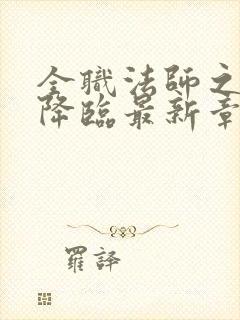 全職法師之
降臨最新章
羅譯